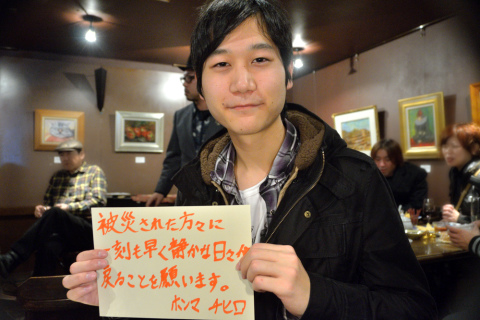 被災された方々に
一刻も早く静かな日々が
戻ることを願います。
ホンマ チヒロ